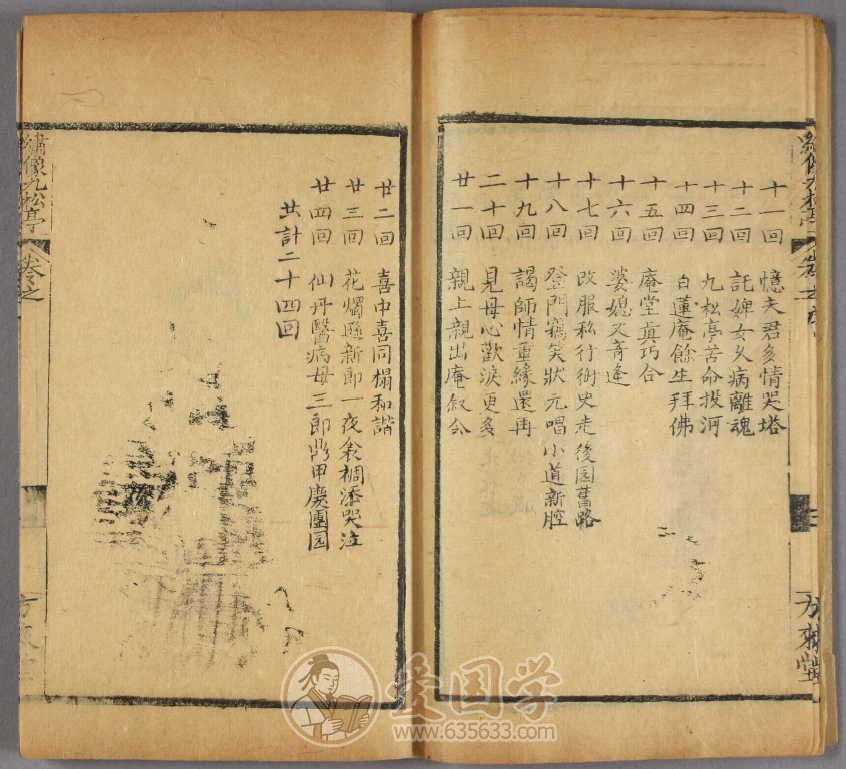 十一回 憶夫君多情哭塔
十二回 託婢女久病離魂
十三回 九松亭苦命投河
十四回 白蓮庵餘生拜佛
十五回 庵堂真巧合
十六回 婆媳又奇逢
十七回 改服私行街史走後园舊路
十八回 登門竊笑狀元唱小道新腔
十九回 謁師情重緣還再
二十回 見母心歡淚更多
廿一回 親上親出庵叙会
廿二回 喜中喜同榻和諧
廿三回 花燭遜新郎一夜衾裯添哭泣
廿四回 仙丹醫病母三郎鼎甲慶團圆
共計二十四回
繡像九松亭
卷之
爱国学
www.635633.com